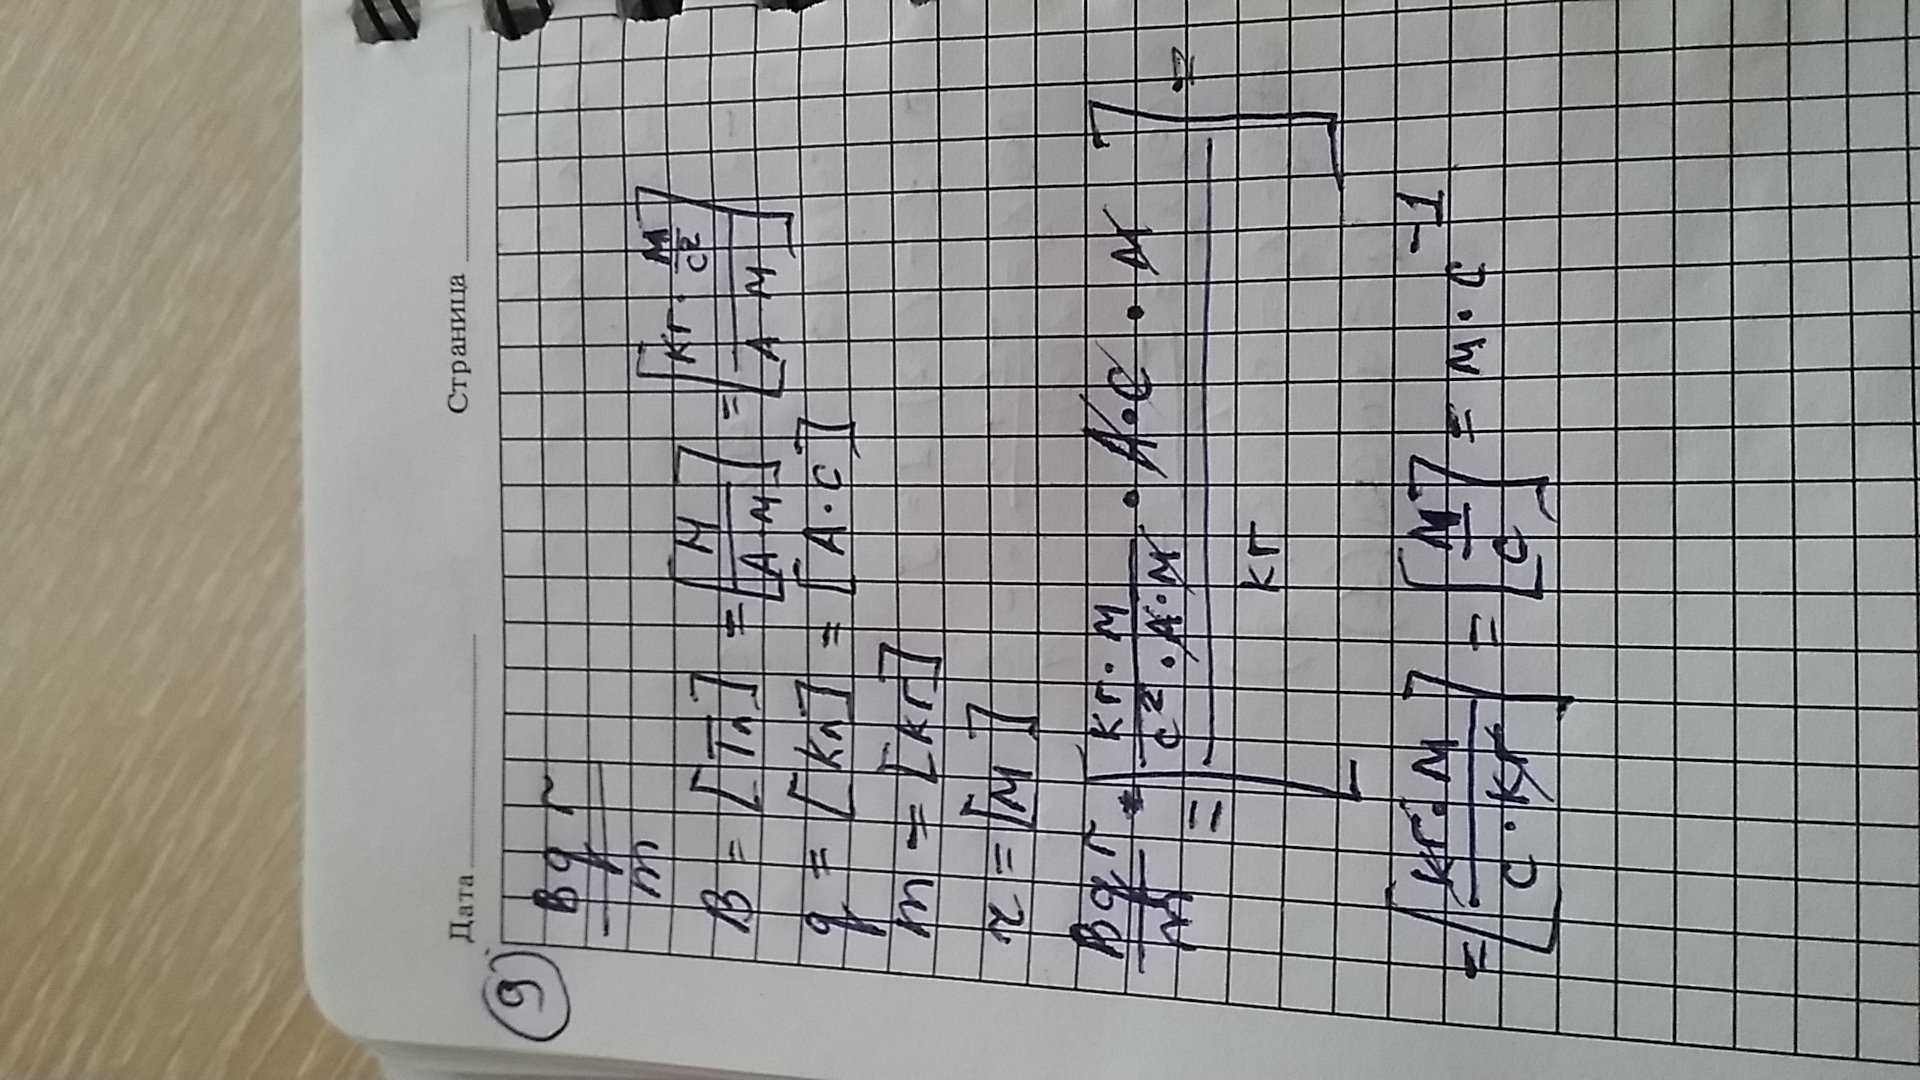 Дата Страница
9
Bqr
m
B = [Тл] = [Н / А·м] = [кг · м/с² / А · м]
q = [Кл] = [А·с]
m = [кг]
r = [м]
Bqr / m = [кг·м / с²·А·м · А·с · м / кг] =
= [кг·м / с·кг] = [м / с] = м·с⁻¹